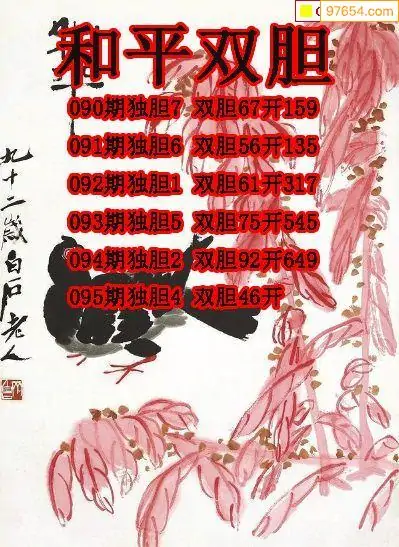 97654.com
和平双胆
090期独胆7 双胆67开159
091期独胆6 双胆56开135
092期独胆1 双胆61开317
093期独胆5 双胆75开545
094期独胆2 双胆92开649
095期独胆4 双胆46开
九十二岁白石老人